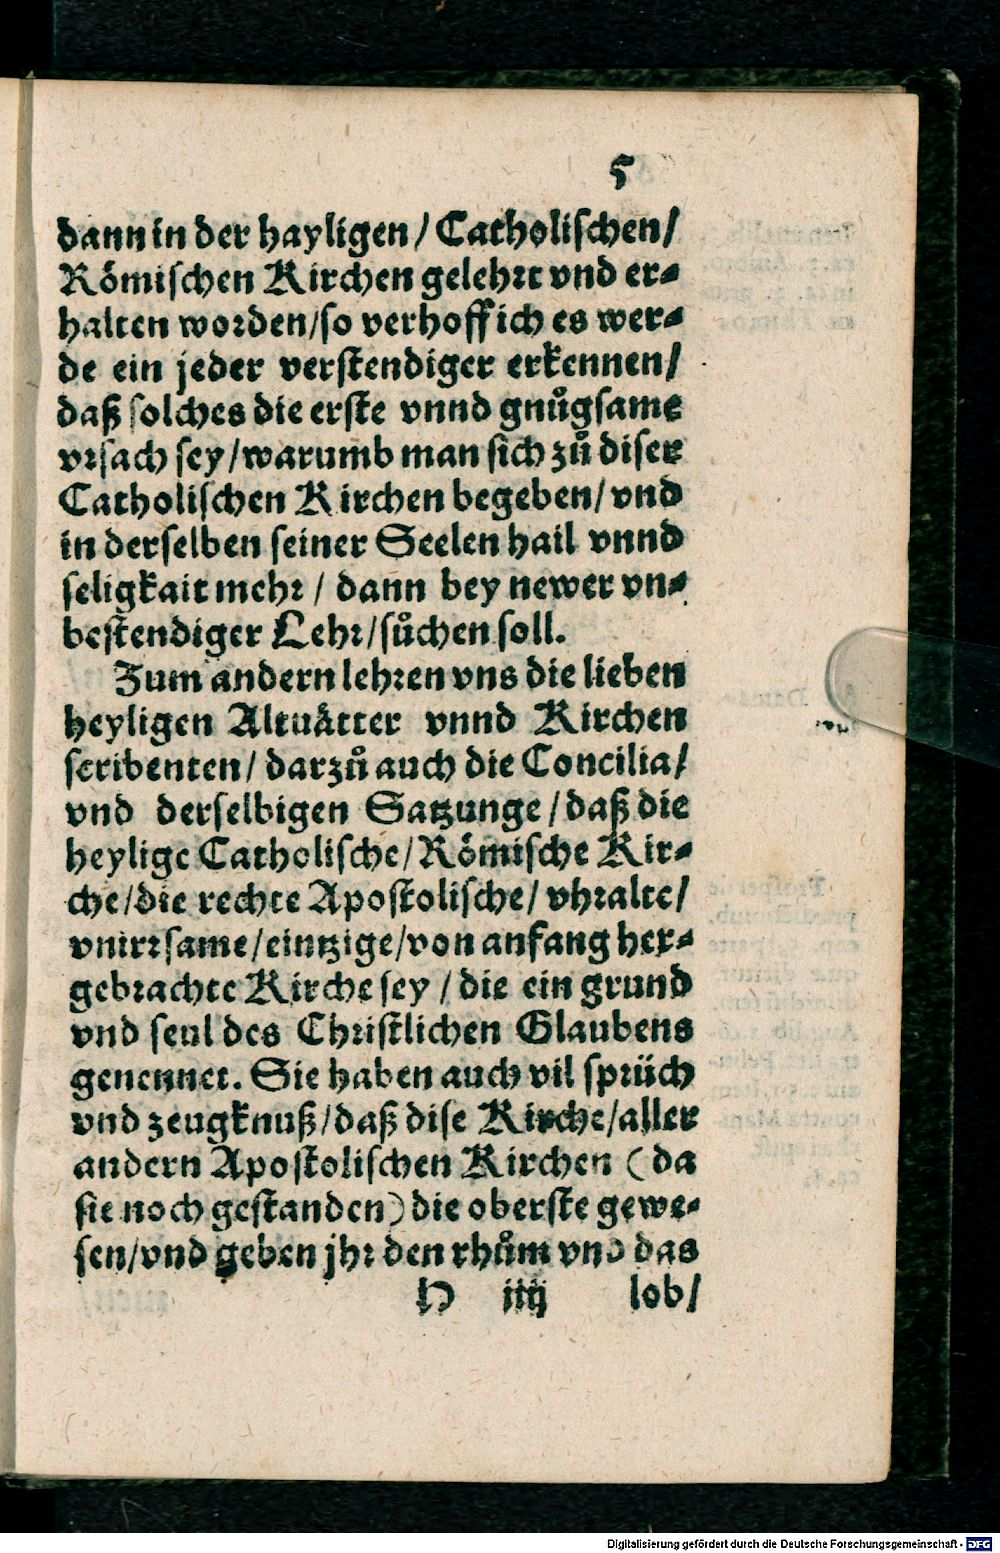 5
dann in der hayligen / Catholischen /
Römischen Kirchen gelehrt vnd er⸗
halten worden / so verhoff ich es wer⸗
de ein jeder verstendiger erkennen /
daß solches die erste vnnd gnůgsame
vrsach sey / warumb man sich zů diser
Catholischen Kirchen begeben / vnd
in derselben seiner Seelen hail vnnd
seligkait mehr / dann bey newer vn⸗
bestendiger Lehr / sůchen soll.
Zum andern lehren vns die lieben
heyligen Altuätter vnnd Kirchen
scribenten / darzů auch die Concilia /
vnd derselbigen Satzunge / daß die
heylige Catholische / Römische Kir⸗
che / die rechte Apostolische / vhralte /
vnirrsame / eintzige / von anfang her⸗
gebrachte Kirche sey / die ein grund
vnd seul des Christlichen Glaubens
genennet. Sie haben auch vil sprüch
vnd zeugknuß / daß dise Kirche / aller
andern Apostolischen Kirchen ( da
sie noch gestanden ) die oberste gewe⸗
sen / vnd geben jhr den rhům vnd das
iiij lob /
Digitalisierung gefördert durch die Deutsche Forschungsgemeinschaft - DFG